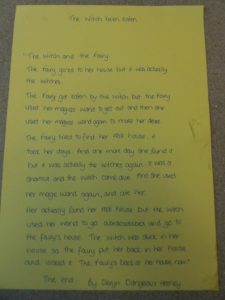 The Witch been Eaten
"The Witch and the Fairy.
The Fairy goned to her house but it was actually
the witches.
The Fairy got eaten by the witch but the Fairy
used her magices wand to get out and then she
used her magices wand again to make her dead.
The Fairy tried to find her real house, it
took her days. And one more day she found it
but it was actually the witches again. It was a
and the witch came alive. And she used
her magic wand again, and ate her.
Her actually found her real house but the witch
used her wand to go abracadabra and go to
the Fairy's house. The witch was stuck in her
house so the fairy put her back in her house
and locked it. The Fairy's back at her house now."
The end. By